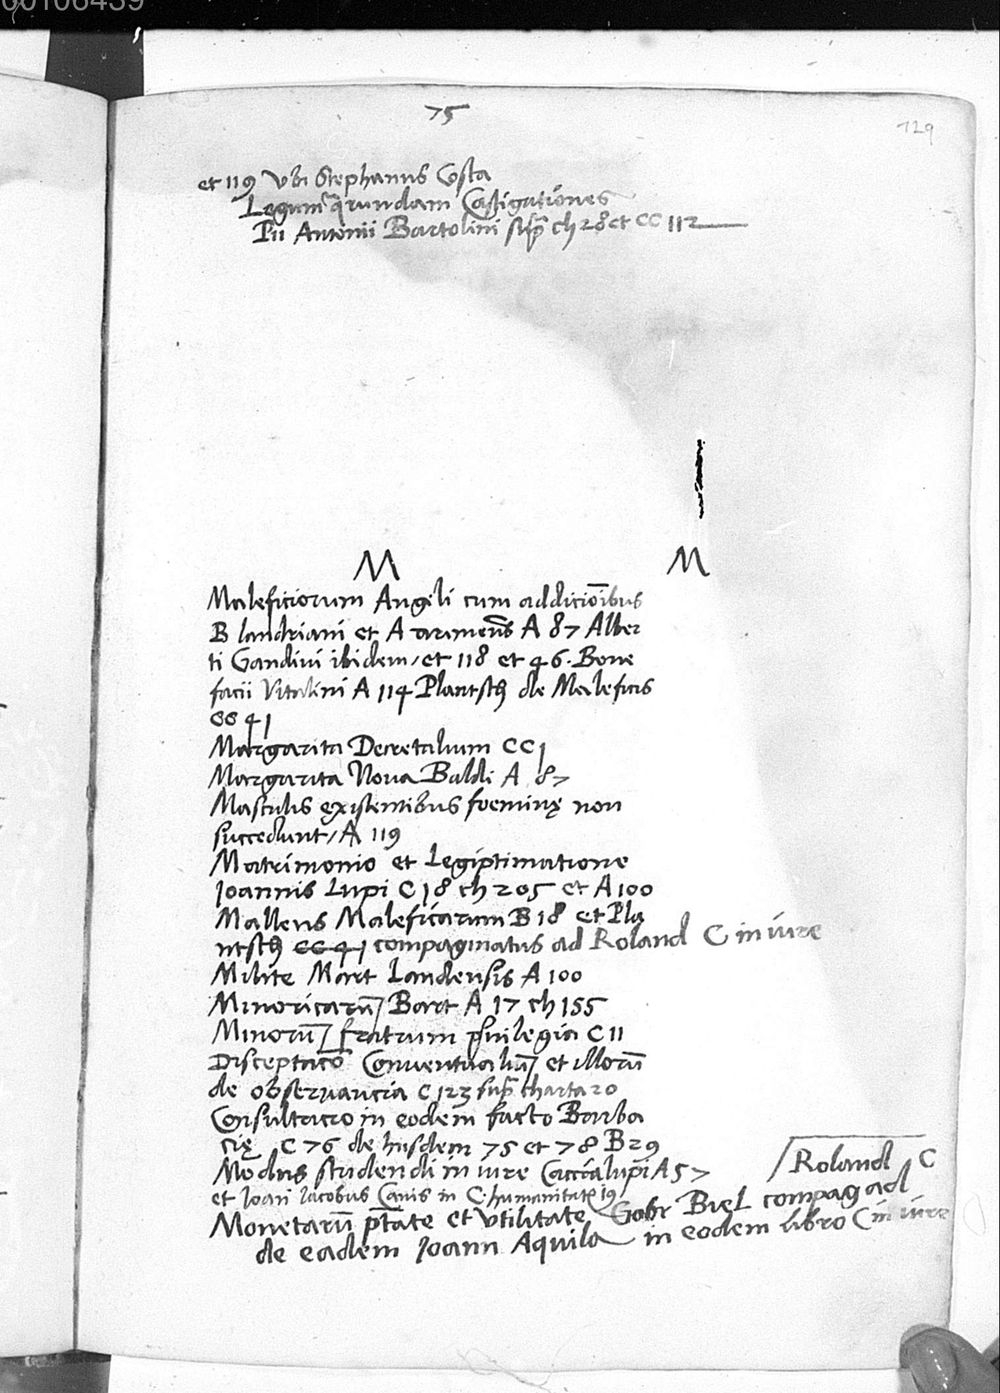 00106439
75
129
et 119 Vbi Stephanus Costa
Legum qrundam Castigationes
Pii Antonii Bartolini sup ch 28 et CC 112
M M
Maleficiorum Angeli cum addicioibus
B landriani et A arimens A 87 Alber
ti Gandini ibidem / et 118 et 46. Bone
facii Vitalini A 114 Plantsch de Maleficis
CC 41
Margarita Decretalium CC 1
Margarita Noua Baldi A 87
Masculis existentibus foeminę non
succedunt / A 119
Matrimonio et Legiptimatione
Ioannis Lupi C 18 ch 205 et A 100
Malleus Maleficarum B 18 et Pla
ntsch CC 41 compaginatus ad Roland C in iure
Milite Mart Laudensis A 100
Minoricarū Bart A 17 ch 155
Minorū fratrum priuilegia C 11
Disceptacō Conuentualiū et illorū
de obseruancia C 123 sup charta 20
Consultacio in eodem facto Barba
cię C 76 de hiisdem 75 et 78 B 29
Modus studendi in iure Caccialupi A 57
et Ioan Iacobus Canis in C. humanitatis 19
Roland C
Monetarū ptate et vtilitate Gabr Biel compag ad
de eadem Ioann Aquila in eodem libro C in iure